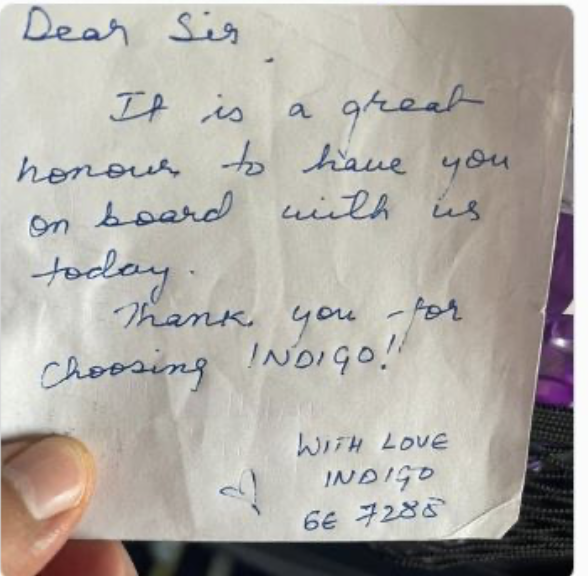 Dear Sir
It is a great
honour to have you
on board with us
today.
Thank you for
choosing INDIGO!!
WITH LOVE
INDIGO
6E 7288